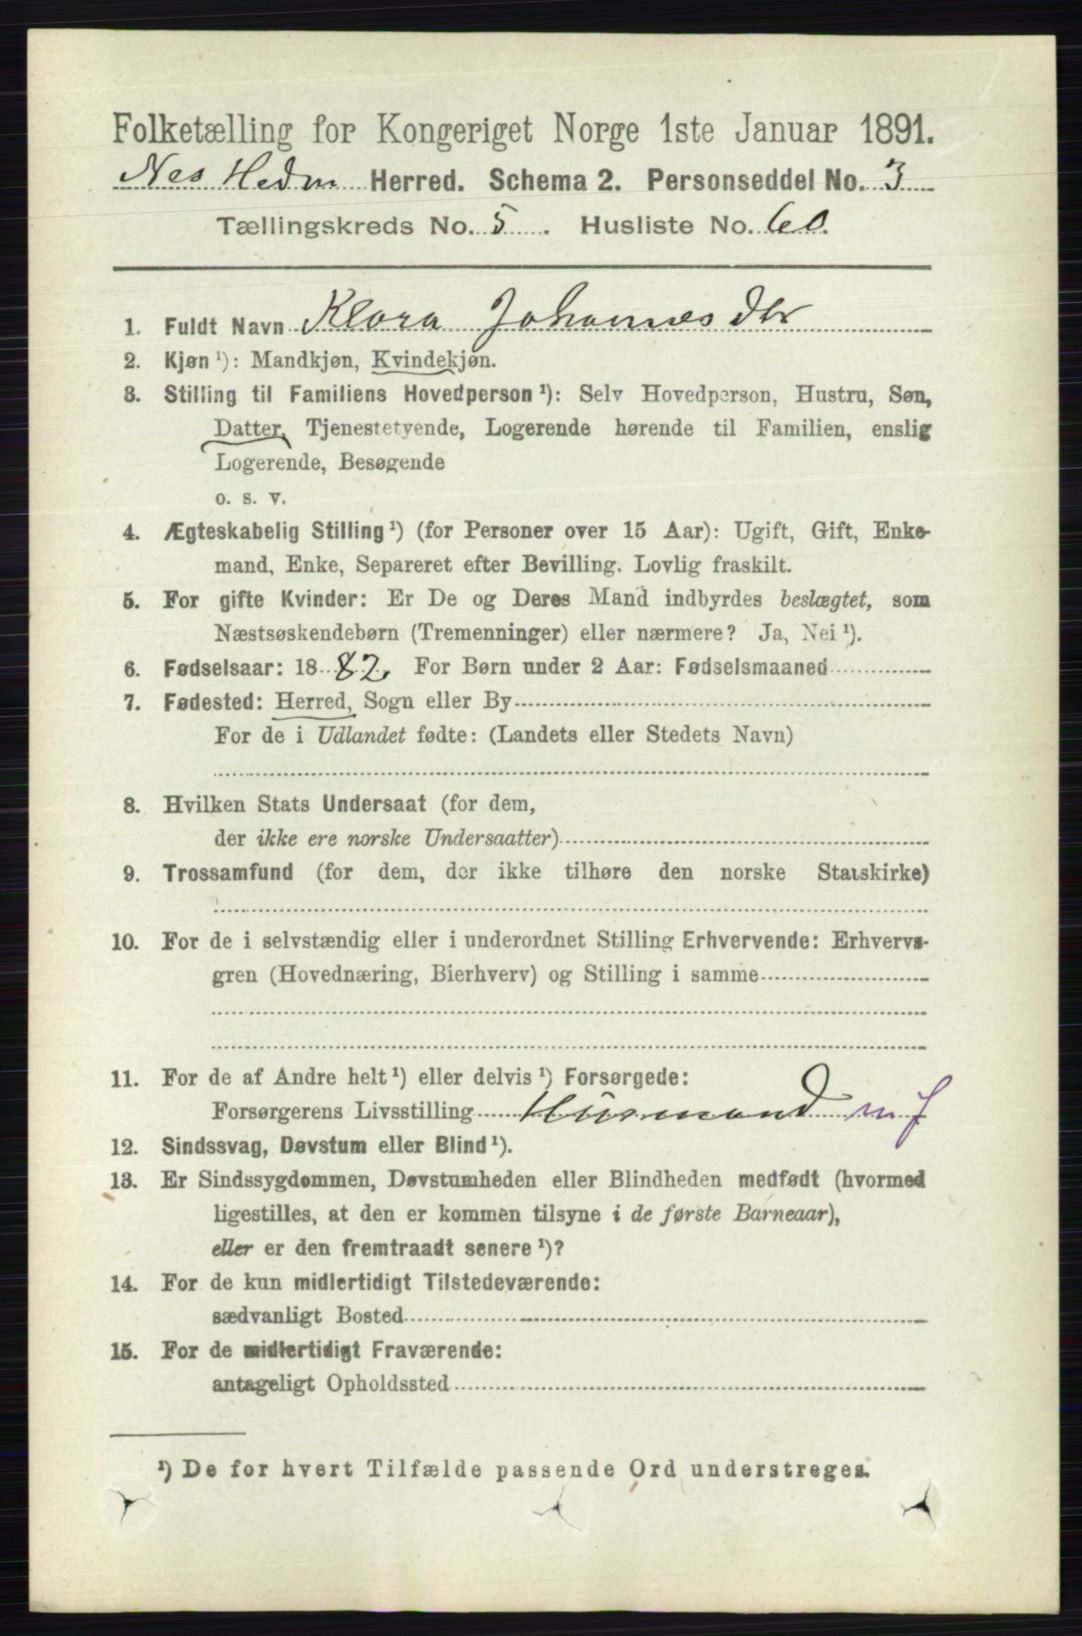 Folketælling for Kongeriget Norge 1ste Januar 1891.
Nes Hedm Herred. Schema 2. Personseddel No. 3
Tællingskreds No. 5. Husliste No. 60.
1. Fuldt Navn Klara Johannesdtr
2. Kjøn ¹): Mandkjøn, Kvindekjøn.
3. Stilling til Familiens Hovedperson ¹): Selv Hovedperson, Hustru, Søn,
Datter, Tjenestetyende, Logerende hørende til Familien, enslig
Logerende, Besøgende
o. s. v.
4. Ægteskabelig Stilling ¹) (for Personer over 15 Aar): Ugift, Gift, Enke-
mand, Enke, Separeret efter Bevilling. Lovlig fraskilt.
5. For gifte Kvinder: Er De og Deres Mand indbyrdes beslægtet, som
Næstsøskendebørn (Tremenninger) eller nærmere? Ja, Nei ¹).
6. Fødselsaar: 1882. For Børn under 2 Aar: Fødselsmaaned
7. Fødested: Herred, Sogn eller By
For de i Udlandet fødte: (Landets eller Stedets Navn)
8. Hvilken Stats Undersaat (for dem,
der ikke ere norske Undersaatter)
9. Trossamfund (for dem, der ikke tilhøre den norske Statskirke)
10. For de i selvstændig eller i underordnet Stilling Erhvervende: Erhvervs-
gren (Hovednæring, Bierhverv) og Stilling i samme
11. For de af Andre helt ¹) eller delvis ¹) Forsørgede:
Forsørgerens Livsstilling Husmand m. J
12. Sindssvag, Døvstum eller Blind ¹).
13. Er Sindssygdommen, Døvstumheden eller Blindheden medfødt (hvormed
ligestilles, at den er kommen tilsyne i de første Barneaar),
eller er den fremtraadt senere ¹)?
14. For de kun midlertidigt Tilstedeværende:
sædvanligt Bosted
15. For de midlertidigt Fraværende:
antageligt Opholdssted
¹) De for hvert Tilfælde passende Ord understreges.